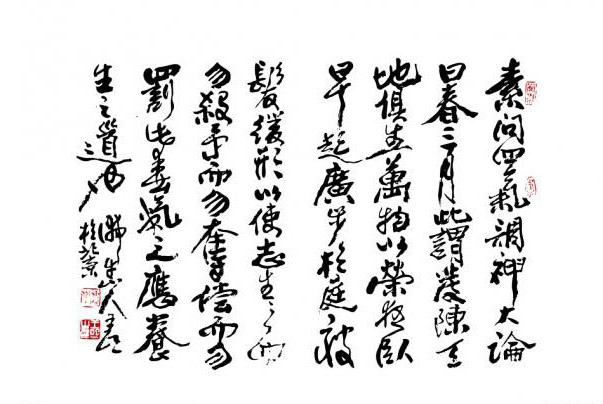 素問四氣調神大論
曰春三月此謂發陳天
地俱生萬物以榮夜臥
早起廣步於庭被
髮緩形以使志生生而
勿殺予而勿奪賞而勿
罰此春氣之應養
生之道也
山人
於北京